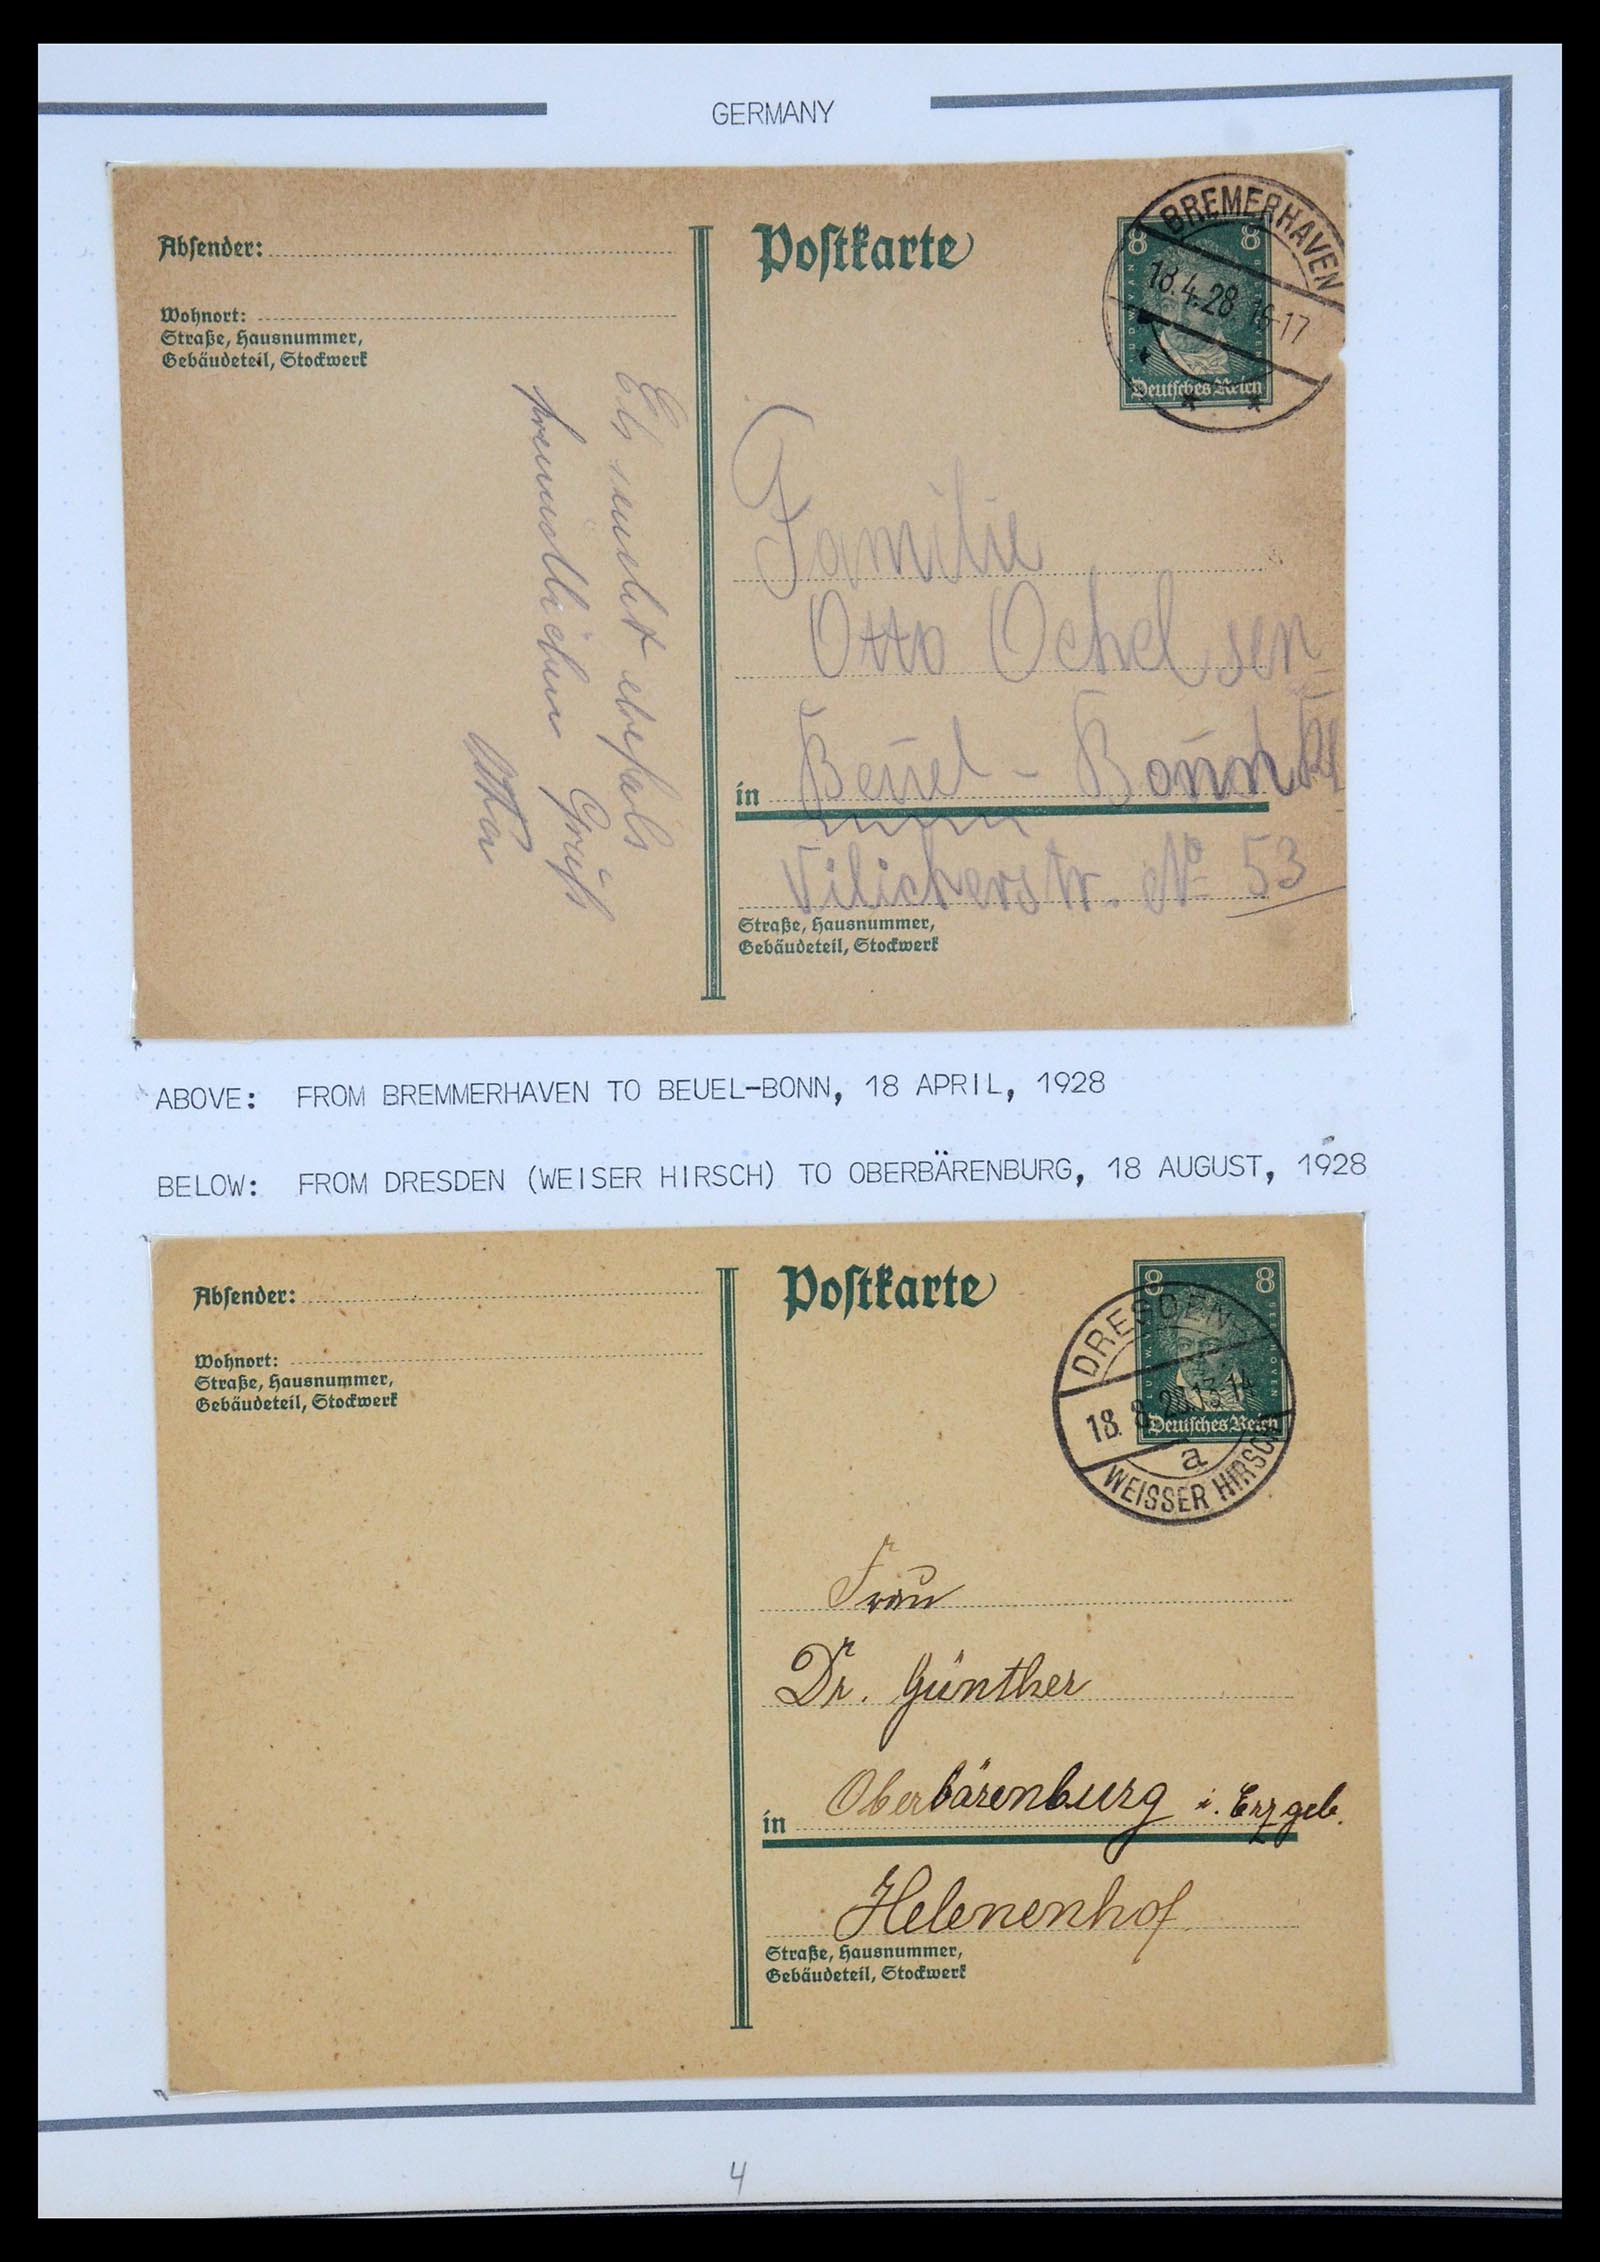 GERMANY
Absender:
Wohnort:
Straße, Hausnummer,
Gebäudeteil, Stockwerk
Es sendet ebenfals
freundlichen Gruß
Postkarte
8 8
LUDWIG VAN
Deutsches Reich
BREMERHAVEN
18.4.28 16-17
* *
Familie
Otto Ochelsen
in Beuel - Bonn
Vilicherstr. No 53
Straße, Hausnummer,
Gebäudeteil, Stockwerk
ABOVE: FROM BREMMERHAVEN TO BEUEL-BONN, 18 APRIL, 1928
BELOW: FROM DRESDEN (WEISER HIRSCH) TO OBERBÄRENBURG, 18 AUGUST, 1928
Absender:
Wohnort:
Straße, Hausnummer,
Gebäudeteil, Stockwerk
Postkarte
8 8
BEETHOVEN
Deutsches Reich
DRESDEN
18. 8. 28. 13-14
a
WEISSER HIRSCH
Frau
Dr. Günther
in Oberbärenburg i. Erzgeb.
Helenenhof
Straße, Hausnummer,
Gebäudeteil, Stockwerk
4